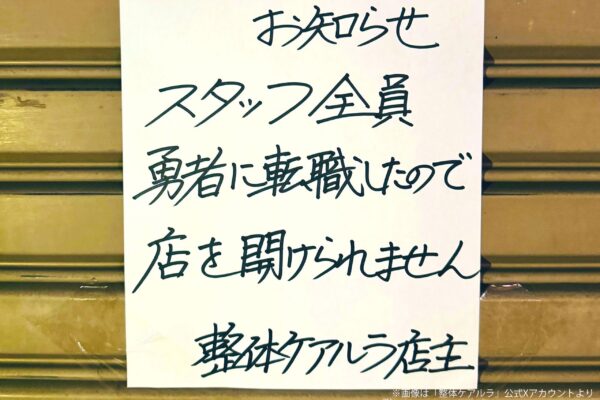 お知らせ
スタッフ全員
勇者に転職したので
店を開けられません
整体ケアルラ店主
※画像は「整体ケアルラ」公式Xアカウントより